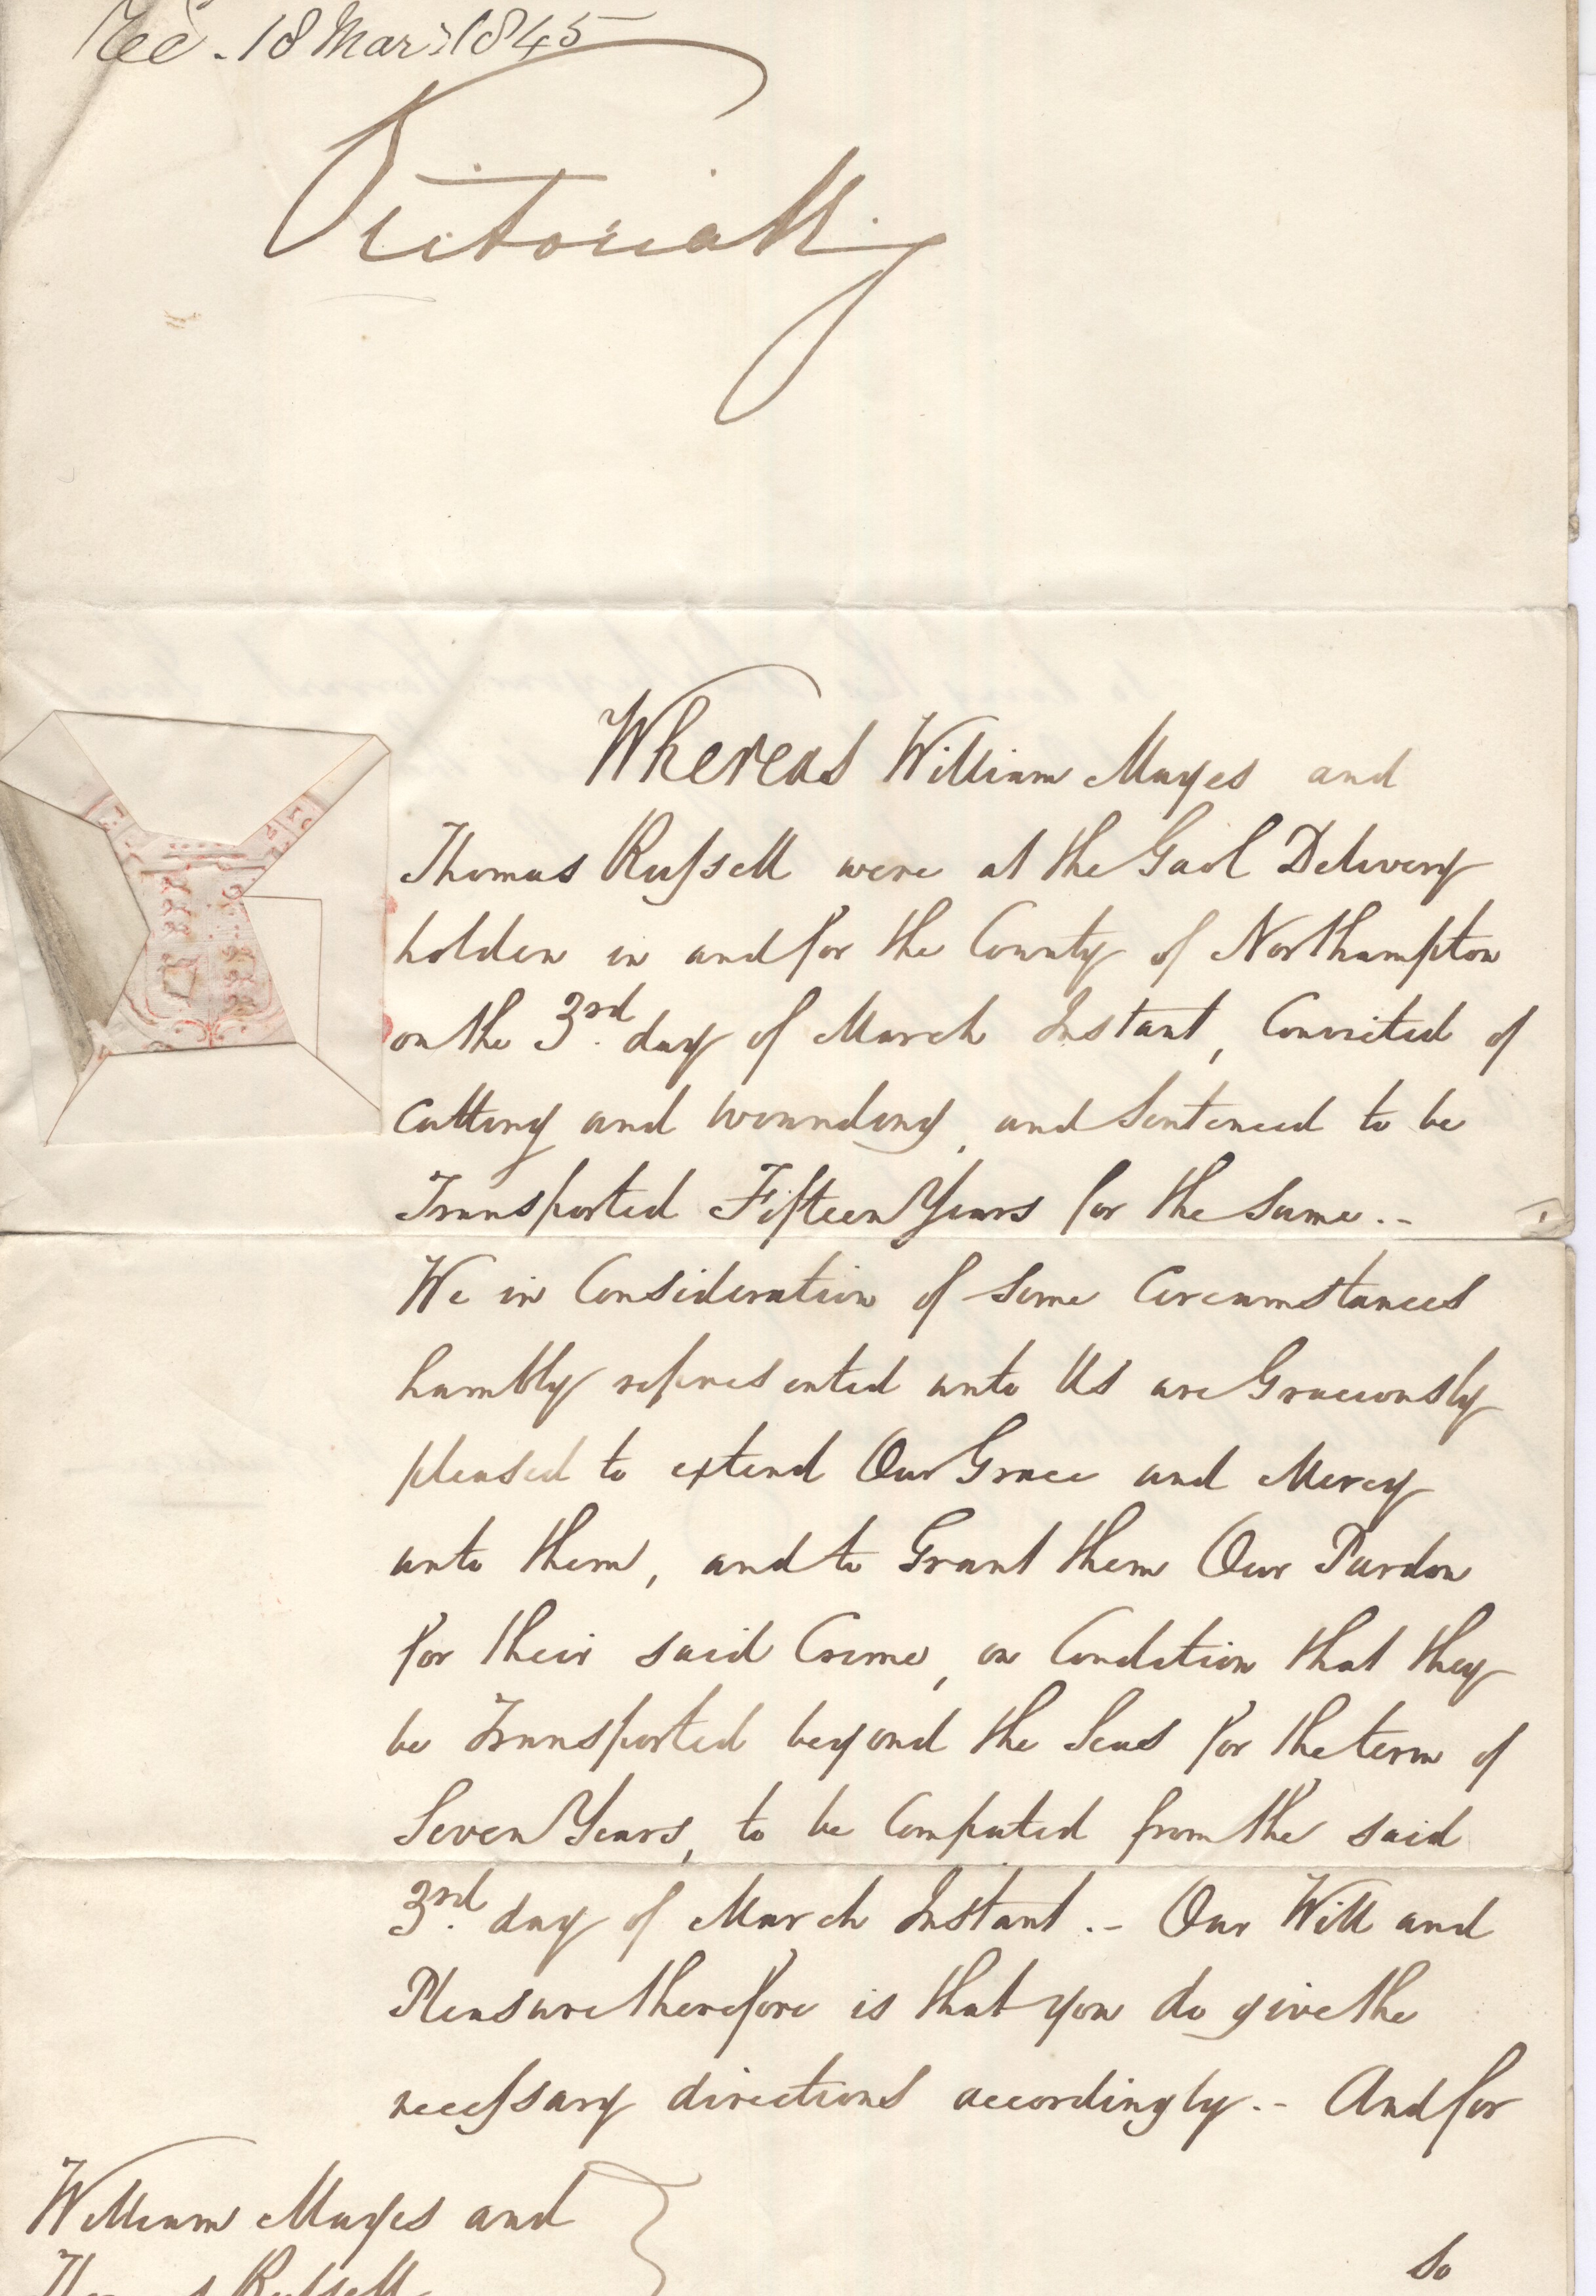 Rec. 18 Mar: 1845
Victoria R.
Whereas William Mayes and
Thomas Russell were at the Gaol Delivery
holden in and for the County of Northampton
on the 3rd. day of March Instant, Convicted of
Cutting and wounding, and Sentenced to be
Transported Fifteen Years for the Same.-
We in Consideration of Some Circumstances
humbly represented unto Us are Graciously
pleased to extend Our Grace and Mercy
unto them, and to Grant them Our Pardon
for their said Crime, on Condition that they
be Transported beyond the Seas for the term of
Seven Years, to be Computed from the said
3rd. day of March Instant.- Our Will and
Pleasure therefore is that you do give the
necessary directions accordingly.- And for
so
William Mayes and
Thomas Russell